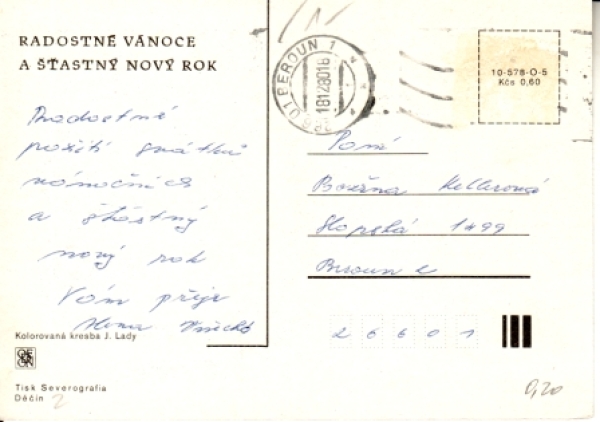 RADOSTNÉ VÁNOCE
A ŠŤASTNÝ NOVÝ ROK
Radostné
požití svátků
vánočních
a šťastný
nový rok
Vám přeje
Kolorovaná kresba J. Lady
Tisk Severografia
Děčín
2
BEROUN 1
266 01
18.12.80-18
10-578-O-5
Kčs 0,60
Paní
Božena Kellerová
1499
Beroun 2
26601
0,20